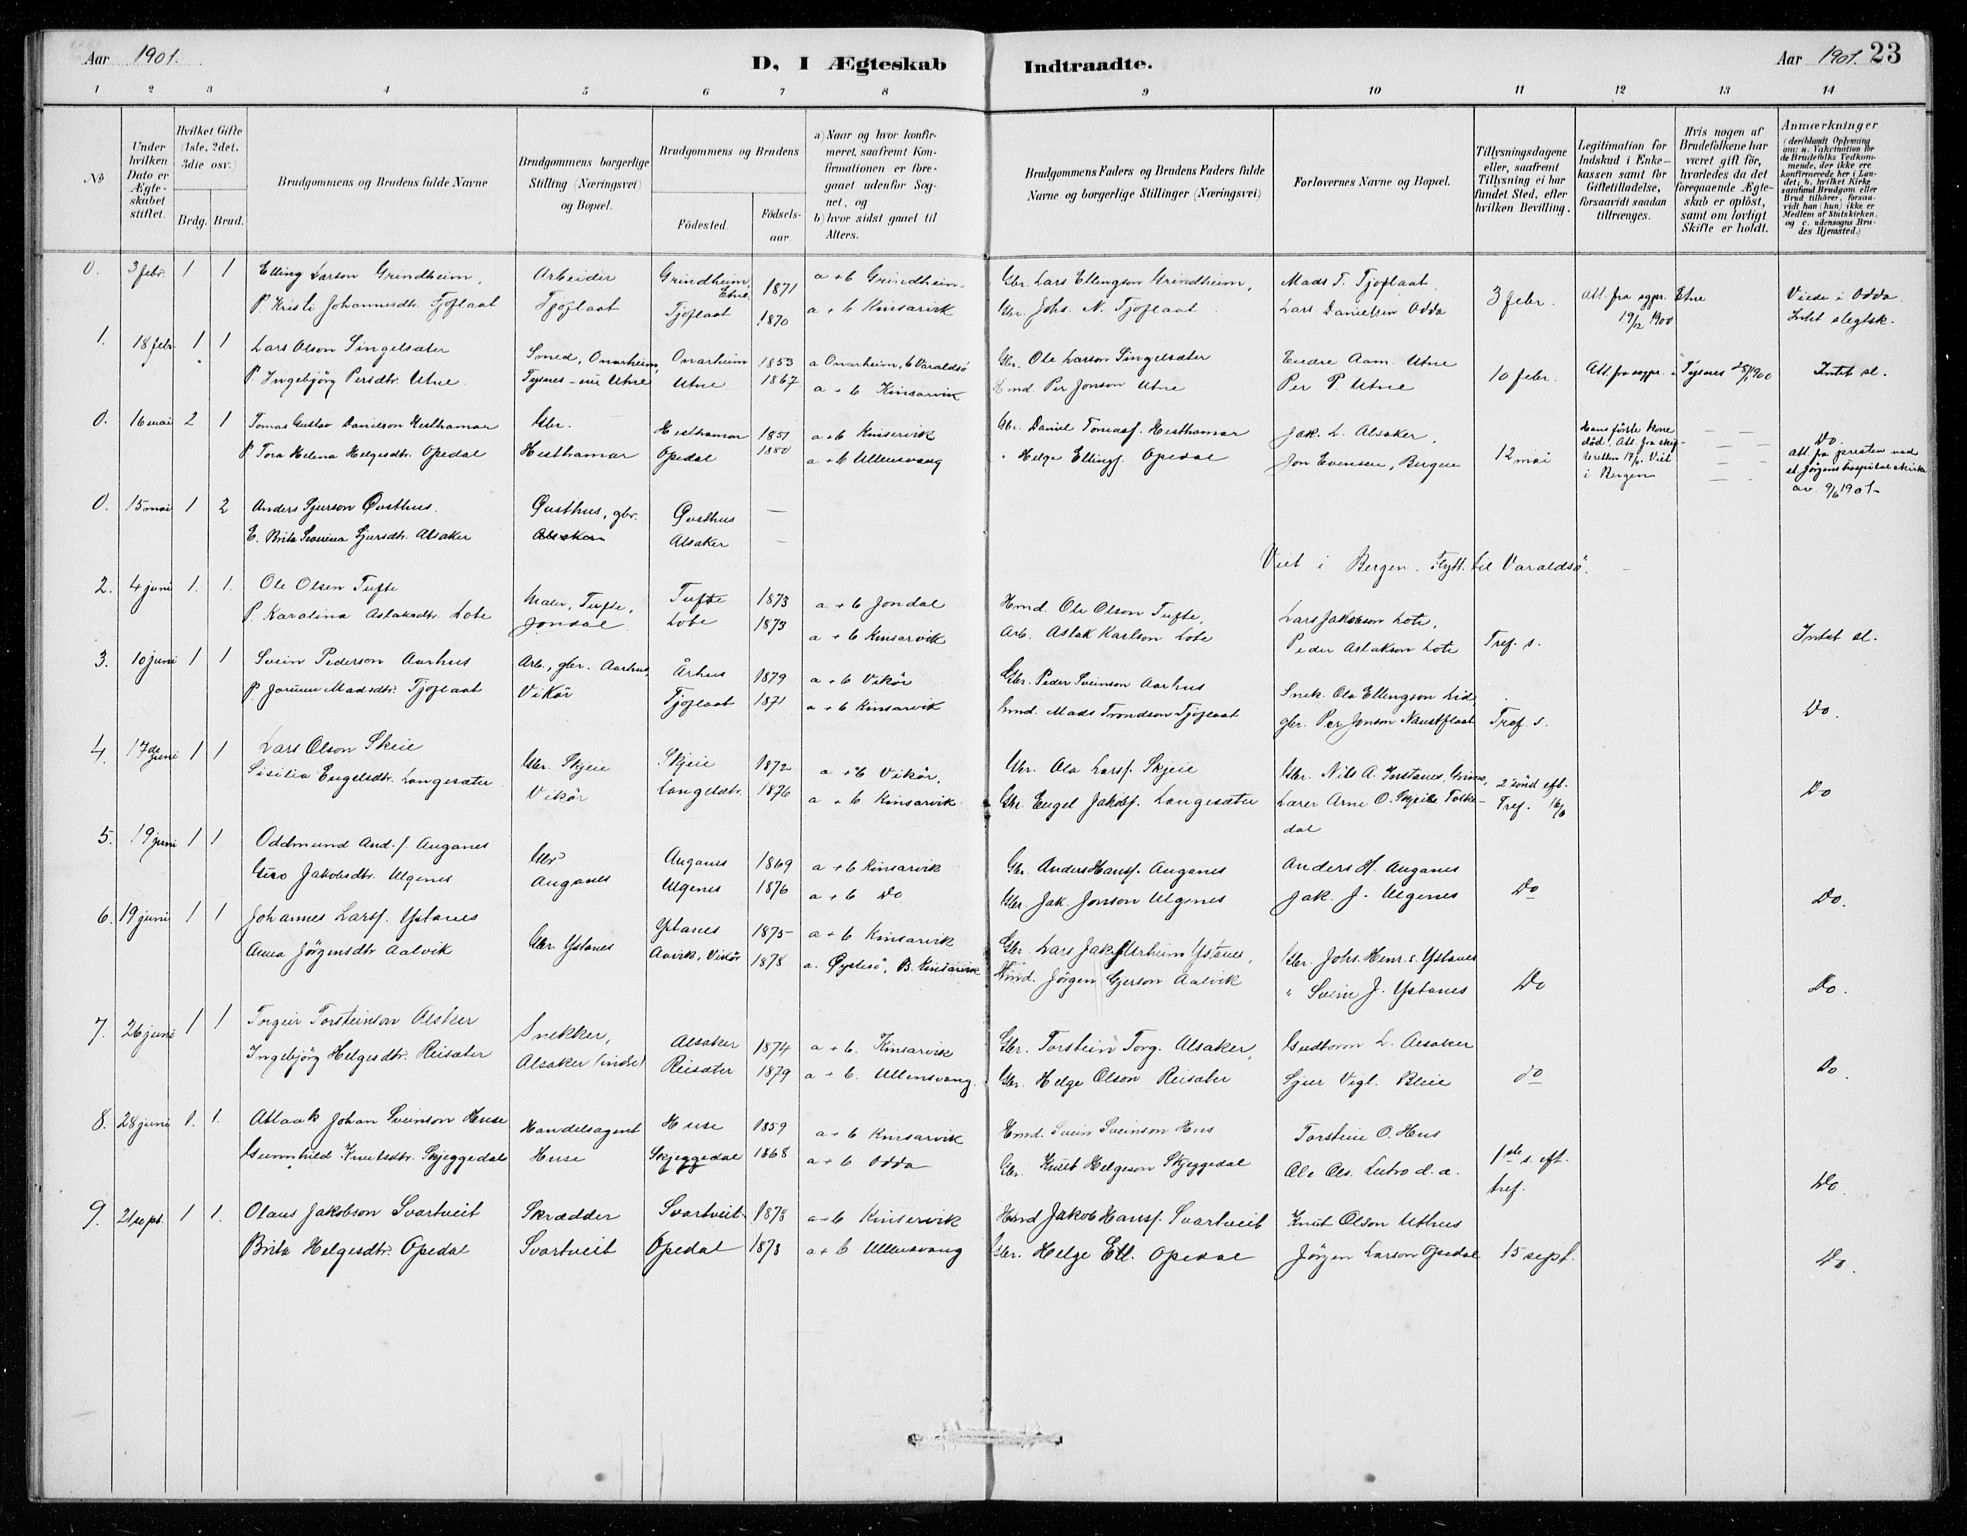 Aar 1901.
D, I Ægteskab Indtraadte.
Aar 1901. 23
1 2 3 4 5 6 7 8 9 10 11 12 13 14
No
Under hvilken Dato er Ægteskabet stiftet.
Hvilket Gifte (1ste, 2det, 3die osv.)
Brdg. Brud.
Brudgommens og Brudens fulde Navne
Brudgommens borgerlige Stilling (Næringsvei) og Bopæl.
Brudgommens og Brudens
Födested.
Födselsaar.
a) Naar og hvor konfirmeret, saafremt Konfirmationen er foregaaet udenfor Sognet, og
b) hvor sidst gaaet til Alters.
Brudgommens Faders og Brudens Faders fulde Navne og borgerlige Stillinger (Næringsvei)
Forlovernes Navne og Bopæl.
Tillysningsdagene eller, saafremt Tillysning ei har fundet Sted, efter hvilken Bevilling.
Legitimation for Indskud i Enkekassen samt for Giftetilladelse, forsaavidt saadan tiltrænges.
Hvis nogen af Brudefolkene har været gift för, hvorledes da det foregaaende Ægteskab er oplöst, samt om lovligt Skifte er holdt.
Anmærkninger (deriblandt Oplysning om: a. Vakcination for de Brudefolks Vedkommende, der ikke ere konfirmerede her i Landet; b, hvilket Kirkesamfund Brudgom eller Brud tilhörer, forsaavidt han (hun) ikke er Medlem af Statskirken, og c. udensogns Brudes Hjemsted.)
0. 3 febr. 1 1 Elling Larson Grindheim, Arbeider Grindheim, Etne 1871 a + b Grindheim. Gbr. Lars Ellingson Grindheim, Mads T. Tjoflaat 3 febr. Att. fra sgpr. Etne 19/2 1900 Viede i Odda
P. Kristi Johannesdtr. Tjoflaat Tjoflaat Tjoflaat 1870 a + b Kinsarvik Gbr. Johs. N. Tjoflaat Lars Danielsen Odda Intet slegtsk.
1. 18 febr 1 1 Lars Olson Singelsæter Smed, Onarheim, Onarheim 1853 a Onarheim, b Varaldsö Gbr. Ole Larson Singelsæter Endre Aam. Utne 10 febr. Att. fra sogpr. i Tysnes 28/1 1900 Intet sl.
P. Ingebjörg Persdtr. Utne Tysnes - nu Utne Utne 1867 a + b Kinsarvik Hmd. Per Jonson Utne Per P. Utne
0. 16 mai 2 1 Tomas Gustav Danielson Hesthamar Gbr. Hesthamar 1851 a + b Kinservik Gbr. Daniel Tomasf. Hesthamar Jak. L. Alsaker, 12 mai Hans förste kone död. Att. fra skifteretten 17/1. Viet i Bergen Do. att. fra presten ved st. Jørgens hospitalskirke av. 9/6 1901
P. Tora Helena Helgesdtr. Opedal Hesthamar Opedal 1880 a + b Ullensvang " Helge Ellingf. Opedal Jon Evensen, Bergen
0. 15 mai 1 2 Anders Sjurson Qvsthus. Qusthus, gbr. Qvsthus —
E. Brita Severina Gjersdtr. Alsaker Alsaker Alsaker —
Viet i Bergen. Flytt. til Varaldsö.
2. 4 juni 1. 1. Ole Olsen Tufte Maler, Tufte, Tufte 1873 a + b Jondal Hmd. Ole Olson Tufte, Lars Jakobson Lote, Tref. s. Intet sl.
P. Karalina Aslaksdtr. Lote Jondal Lote 1873 a + b Kinsarvik Arb. Aslak Karlson Lote Peder Aslakson Lote
3. 10 juni 1 1 Svein Pederson Aarhus Arb., gbr. Aarhus, Århus 1879 a + b Vikör Gbr. Peder Sveinson Aarhus Snek. Ola Ellingson Lid, Tref s. Do.
P. Madsdtr. Tjoflaat Vikör Tjoflaat 1871 a + b Kinsarvik hmd. Mads Trondson Tjoflaat gbr. Per Jonson Naustflaat
4. 17de juni 1 1 Lars Olson Skeie Gbr. Skjeie Skjeie 1872 a + b Vikör, Gbr. Ola Larsf. Skjeie Gbr. Nils A. Instanes, Grimo, 2 sönd eft. Tref. 16/6 Do
Sisilia Engelsdtr. Langesæter Vikör Langesætr. 1876 a + b Kinsarvik Gbr. Engel Jakobf. Langesæter Lærer Arne O. Skjeie Tolkedal
5. 19 juni 1 1 Oddmund And. f. Auganes Gbr. Auganes 1869 a + b Kinsarvik Gbr. Anders Hansf. Auganes Anders H. Auganes Do Do.
Guro Jakobsdtr. Ulgenes Auganes Ulgenes 1876 a + b Do Gbr. Jak. Jonson Ulgenes Jak. J. Ulgenes
6. 19 juni 1 1 Johannes Larsf. Ystanes Gbr Ystanes Ystanes 1875 a + b Kinsarvik Gbr. Lars Jak Urheim Ystanes, Gbr. Johs. Henr. s. Ystanes Do Do.
Anna Jörgensdtr Aalvik Aavik, Vikör 1878 a. Øystesö, B. Kinsarvik Hmd. Jörgen Gjerson Aalvik " Svein J. Ystanes
7. 26 juni 1 1 Torgeir Torsteinson Alsaker Snekker, Alsaker 1874 a + b. Kinsarvik Gbr. Torstein Torg. Alsaker, Gudtorm L. Alsaker do Do.
Ingebjörg Helgesdtr. Reisæter Alsaker (indre) Reisæter 1879 a + b. Ullensvang. Gbr. Helge Olson Reisæter Sjur Vigl. Bleie
8. 28 juni 1. 1. Atlaak Johan Sveinson Huse Handelsagent Huse 1859 a + b Kinsarvik Hmd. Svein Sveinson Hus Torstein O. Hus 1ste s. eft. tref. Do.
Gunnhild Knutsdtr. Skjeggedal Huse Skjeggedal 1868 a + b Odda Gbr. Knut Helgeson Skjeggedal Ole Ols. Lutro d. a.
9. 21 sept. 1 1. Olaus Jakobson Svartveit Skrædder Svartveit 1878 a + b Kinservik Hmd Jakob Hansf. Svartveit Knut Olson Uthus 15 sept. Do.
Brita Helgesdtr. Opedal Svartveit Opedal 1878 a + b Ullensvang Gbr. Helge Ell. Opedal Jörgen Larson Opedal